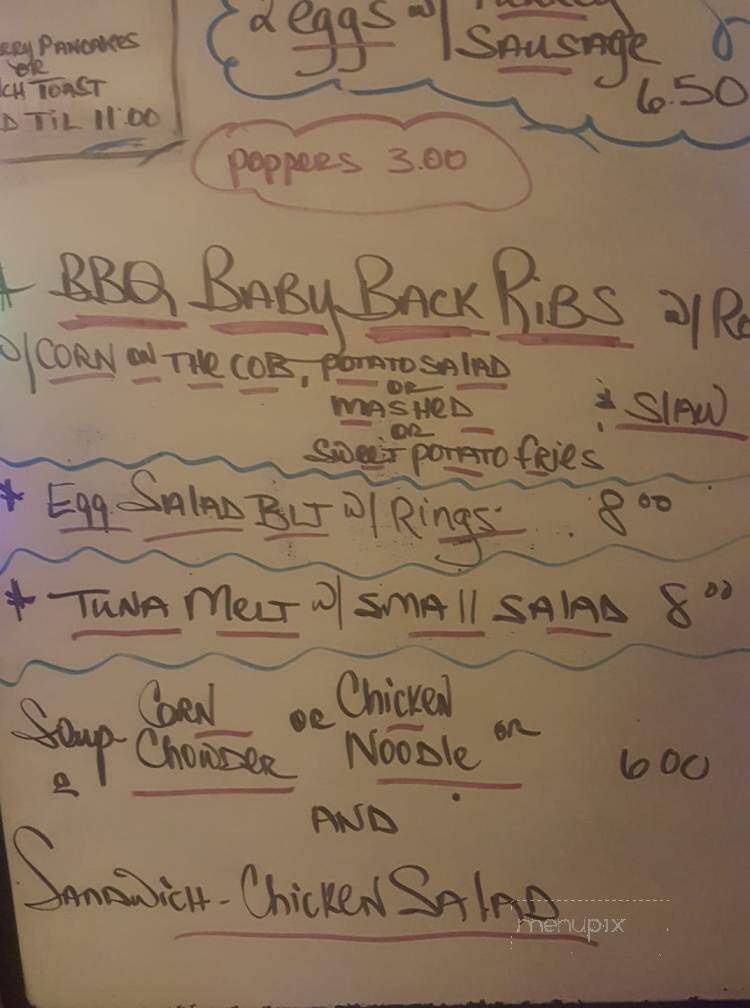 2 eggs w/
SAUSAGE
6.50
PANCAKES
OR
TOAST
TIL 11:00
POPPERS 3.00
* BBQ BABY BACK RIBS w/
w/ CORN ON THE COB, POTATO SALAD
OR
MASHED
& SLAW
OR
SWEET POTATO FRIES
* Egg SALAD BLT w/ Rings 8 00
* TUNA MELT w/ SMALL SALAD 8 00
Soup- CORN CHOWDER OR Chicken NOODLE OR
6 00
AND
SANDWICH - CHICKEN SALAD
menupix